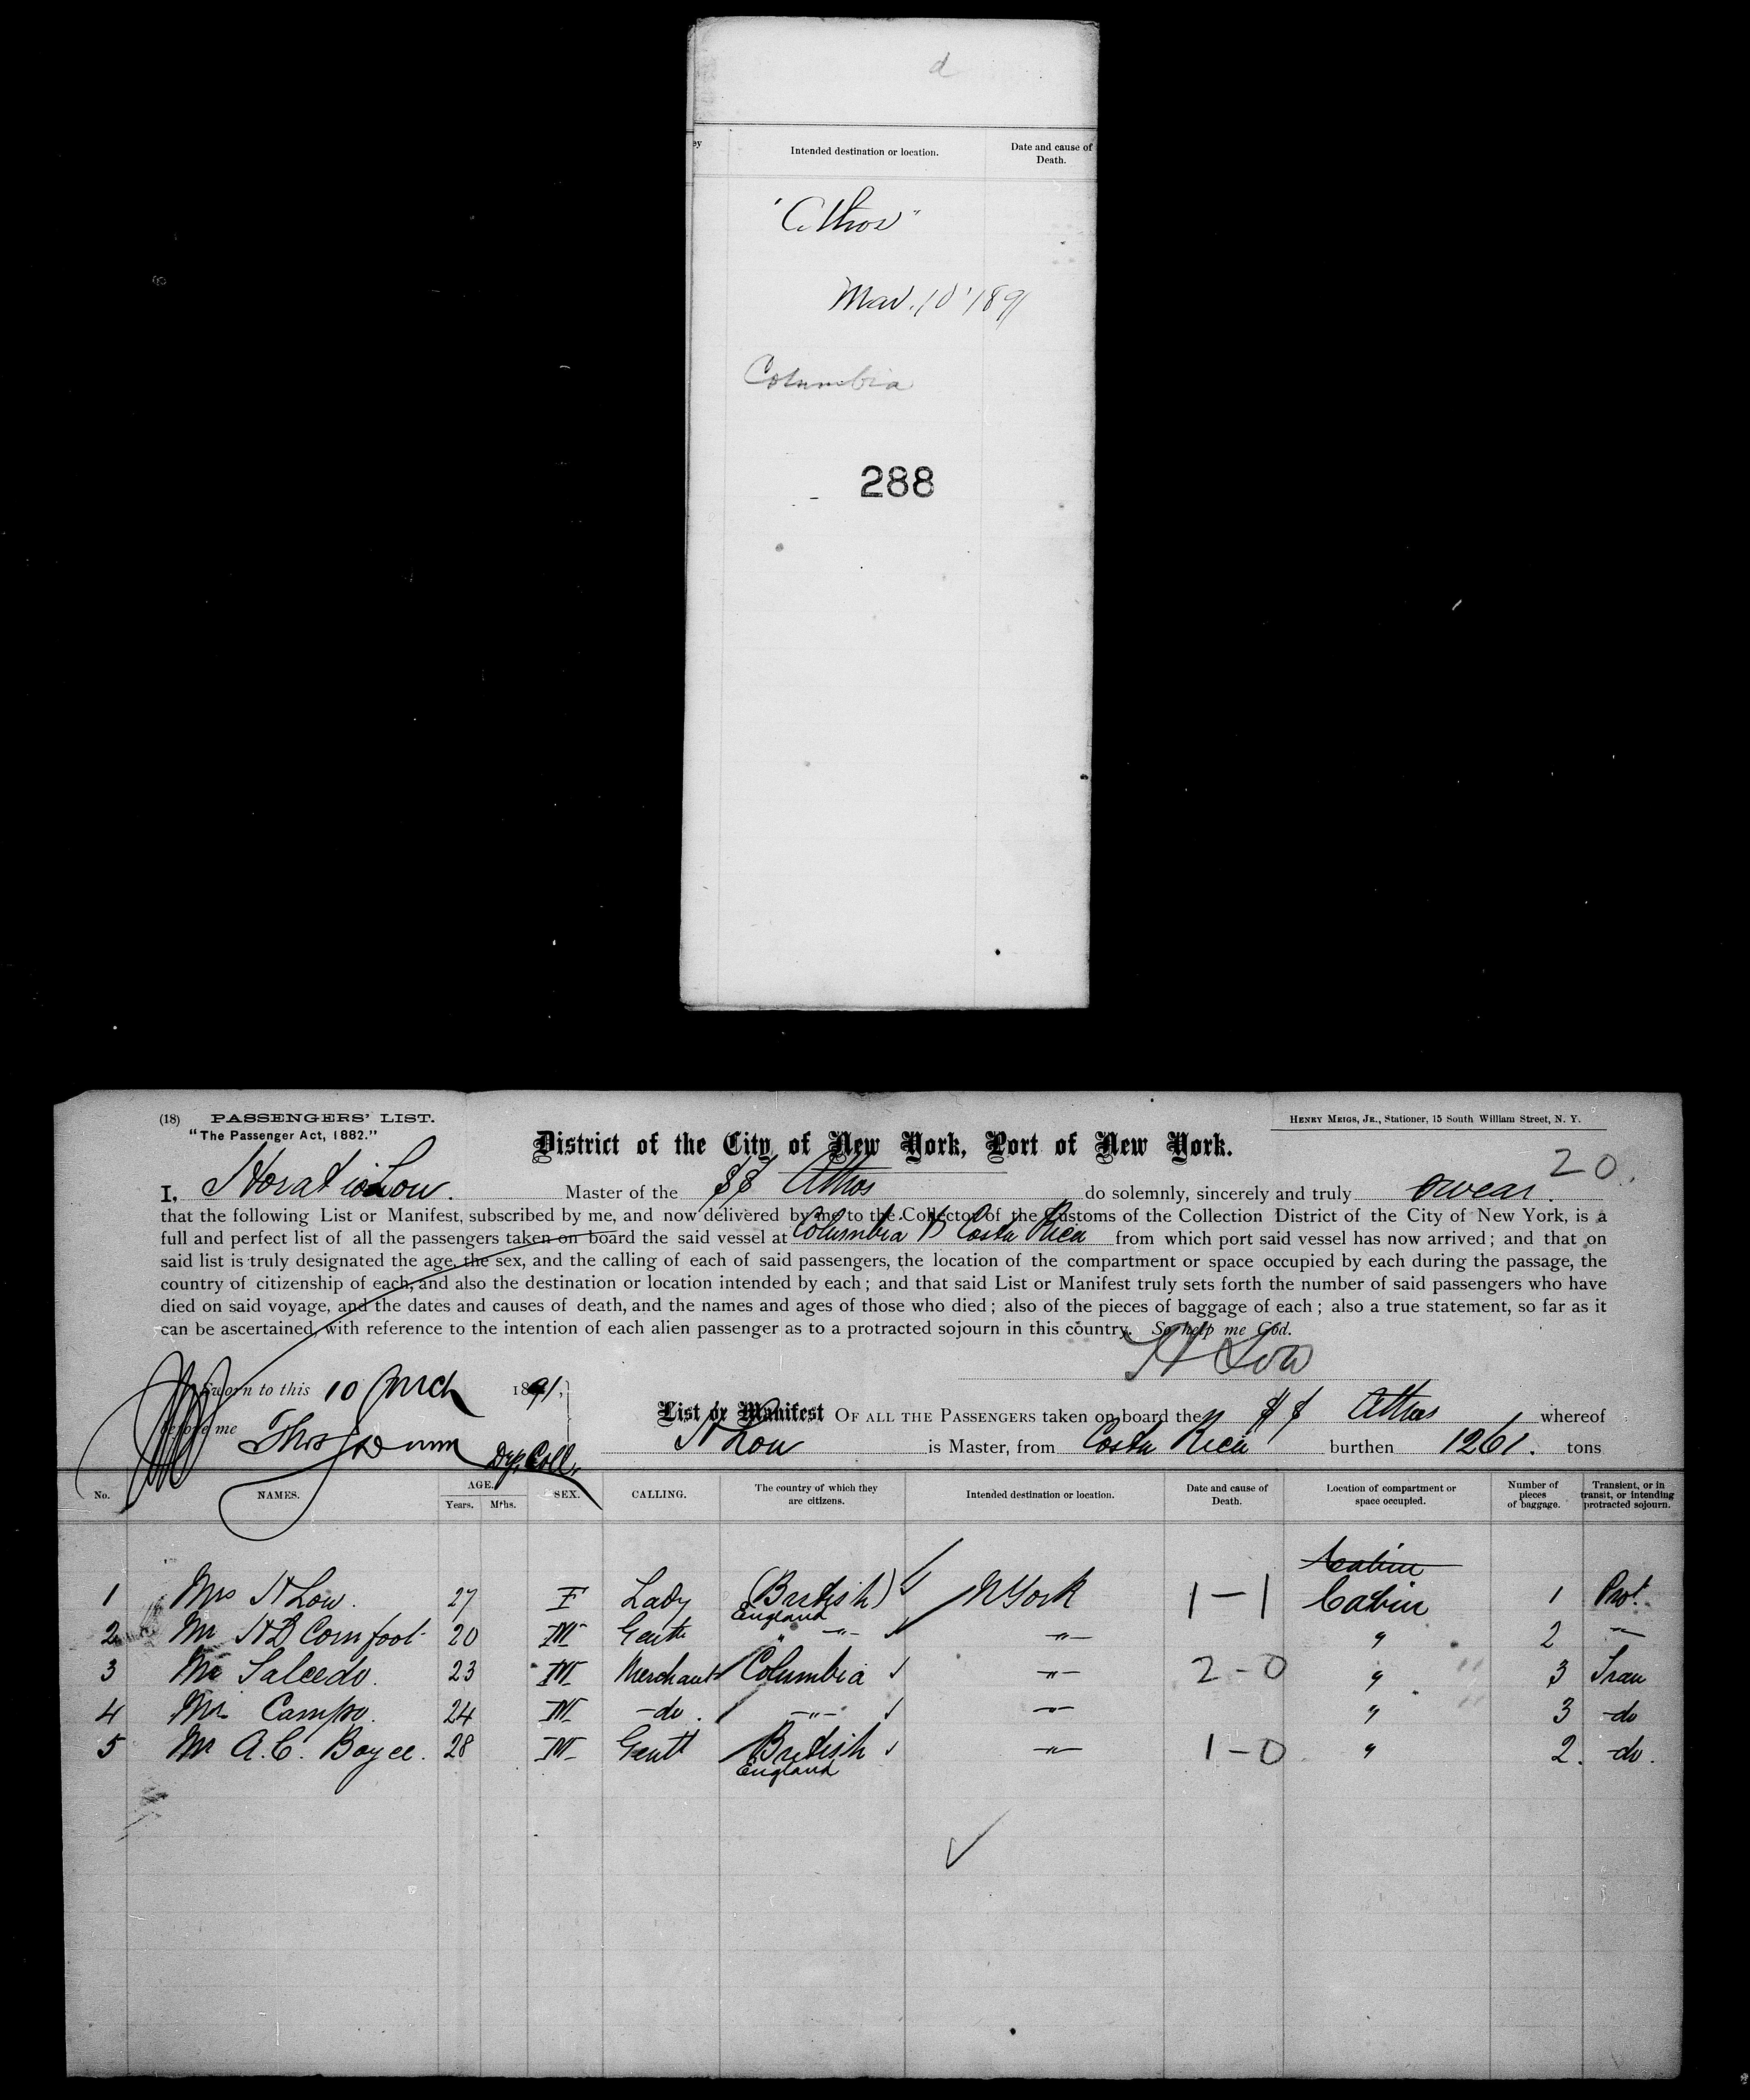 d
ey Intended destination or location. Date and cause of Death.
"Athos"
Mar. 10' 1891
Columbia
288
(18) PASSENGERS' LIST. HENRY MEIGS, JR., Stationer, 15 South William Street, N. Y.
"The Passenger Act, 1882."
District of the City of New York, Port of New York.
20.
I, Horatio Low. Master of the SS Athos do solemnly, sincerely and truly swear.
that the following List or Manifest, subscribed by me, and now delivered by me to the Collector of the Customs of the Collection District of the City of New York, is a
full and perfect list of all the passengers taken on board the said vessel at Columbia & Costa Rica from which port said vessel has now arrived; and that on
said list is truly designated the age, the sex, and the calling of each of said passengers, the location of the compartment or space occupied by each during the passage, the
country of citizenship of each, and also the destination or location intended by each; and that said List or Manifest truly sets forth the number of said passengers who have
died on said voyage, and the dates and causes of death, and the names and ages of those who died; also of the pieces of baggage of each; also a true statement, so far as it
can be ascertained, with reference to the intention of each alien passenger as to a protracted sojourn in this country. So help me God.
H Low
Sworn to this 10 March 1891,
before me Dep. Coll.
List or Manifest OF ALL THE PASSENGERS taken on board the SS Athos whereof
H Low is Master, from Costa Rica burthen 1261. tons
No. NAMES. AGE. Years. Mths. SEX. CALLING. The country of which they are citizens. Intended destination or location. Date and cause of Death. Location of compartment or space occupied. Number of pieces of baggage. Transient, or in transit, or intending protracted sojourn.
Cabin
1 Mrs H Low. 27 F Lady (British) England N York 1-1 Cabin 1 Prot.
2 Mr H B Cornfoot 20 M Gentn " -"- -"- " 2 -"-
3 Mr Salcedo. 23 M Merchant Columbia -"- 2-0 " 3 Tran
4 Mr Campo. 24 M -do. -"- -"- " 3 -do
5 Mr A. C. Boyce. 28 M Gentt British England -"- 1-0 " 2. -do.